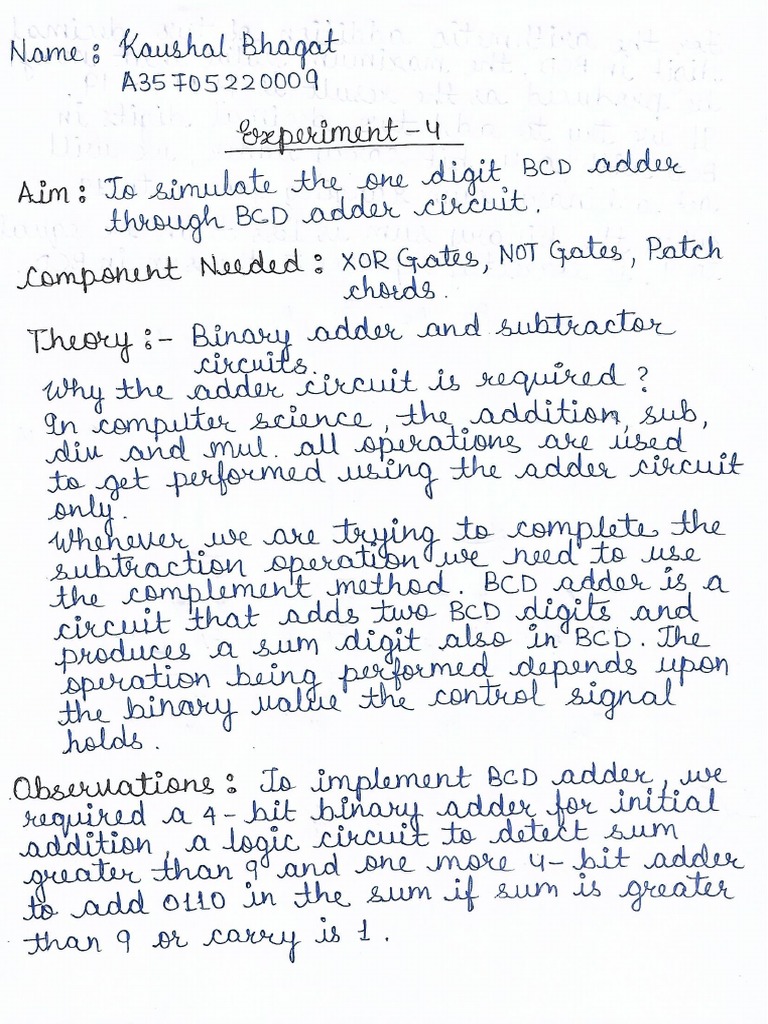 Name: Kaushal Bhagat
A35705220009
Experiment-4
Aim: To simulate the one digit BCD adder
through BCD adder circuit.
Component Needed: XOR Gates, NOT Gates, Patch
chords.
Theory:- Binary adder and subtractor
circuits.
Why the adder circuit is required?
In computer science, the addition, sub,
div and mul. all operations are used
to get performed using the adder circuit
only.
Whenever we are trying to complete the
subtraction operation we need to use
the complement method. BCD adder is a
circuit that adds two BCD digits and
produces a sum digit also in BCD. The
operation being performed depends upon
the binary value the control signal
holds.
Observations: To implement BCD adder, we
required a 4-bit binary adder for initial
addition, a logic circuit to detect sum
greater than 9 and one more 4-bit adder
to add 0110 in the sum if sum is greater
than 9 or carry is 1.